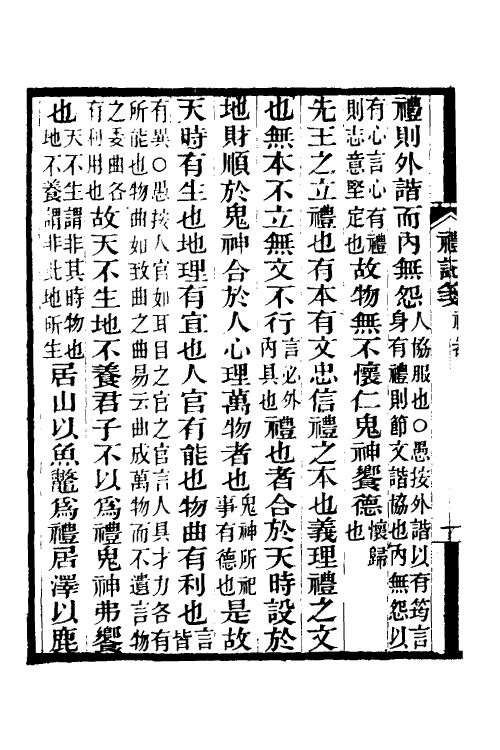 禮記箋
十
禮則外諧而內無怨人協服也〇愚按外諧以有筠言身有禮則節文諧協也內無怨以
有心言心有禮則志意堅定也故物無不懷仁鬼神饗德懷歸也
先王之立禮也有本有文忠信禮之本也義理禮之文
也無本不立無文不行言必外內具也禮也者合於天時設於
地財順於鬼神合於人心理萬物者也鬼神所祀事有德也是故
天時有生也地理有宜也人官有能也物曲有利也言皆
有異〇愚按人官如耳目之官之官言人具才力各有所能也物曲如致曲之曲易云曲成萬物而不遺言物
之委曲各有利用也故天不生地不養君子不以爲禮鬼神弗饗
也天不生謂非其時物也地不養謂非此地所生居山以魚鼈爲禮居澤以鹿